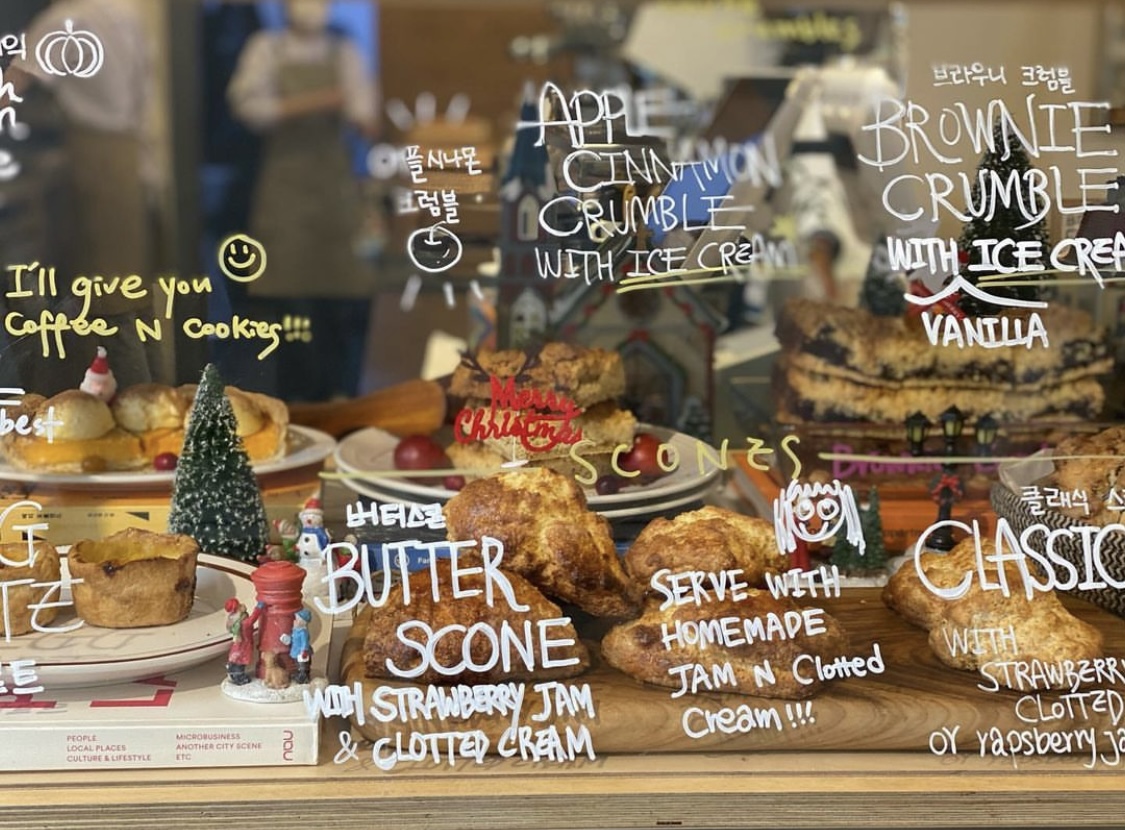 브라우니 크럼블
APPLE
CINNAMON
CRUMBLE
WITH ICE CREAM
플시나몬
크럼블
BROWNIE
CRUMBLE
WITH ICE CREA
VANILLA
I'll give you
Coffee N cookies!!!
best
Merry
Christmas
SCONES
버터스콘
BUTTER
SCONE
WITH STRAWBERRY JAM
& CLOTTED CREAM
SERVE WITH
HOMEMADE
JAM N Clotted
Cream!!!
클래식 스
CLASSIC
WITH
STRAWBERRY
CLOTTED
or rapsberry ja
PEOPLE
LOCAL PLACES
CULTURE & LIFESTYLE
MICROBUSINESS
ANOTHER CITY SCENE
ETC
nau